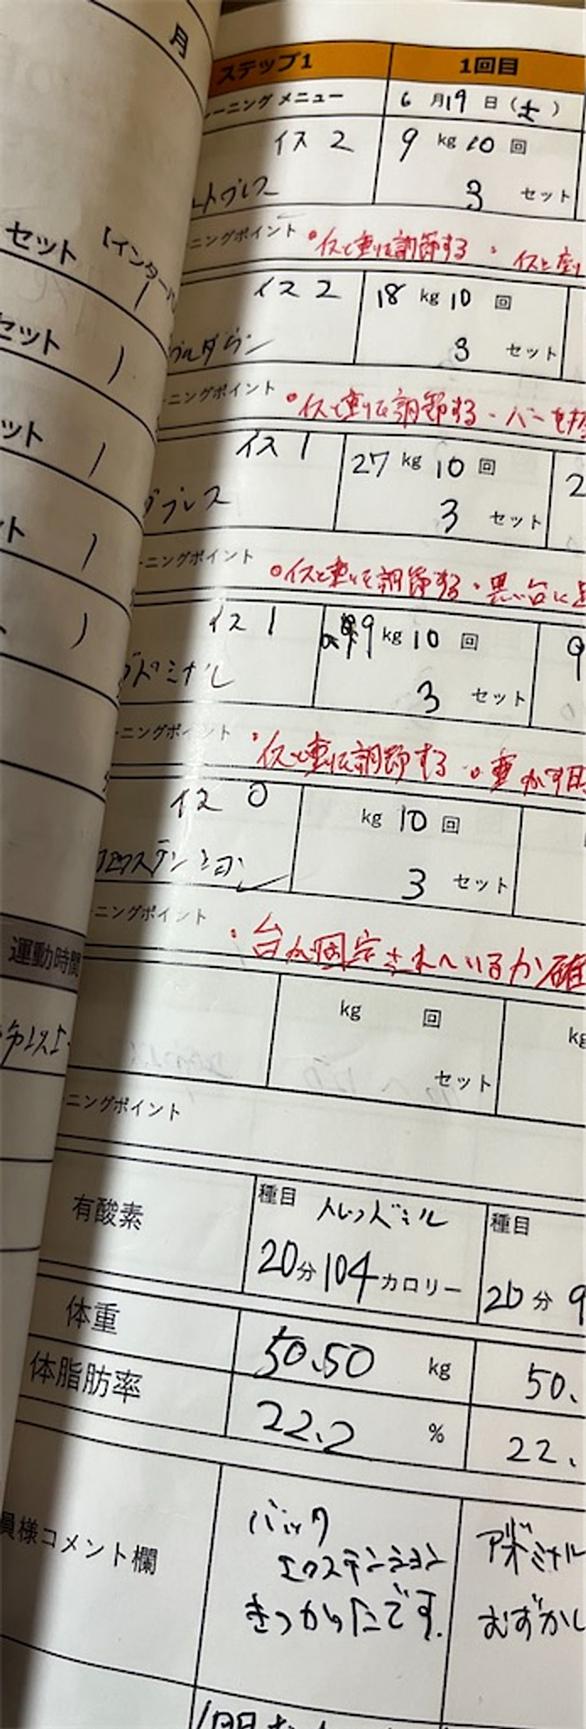 月
ステップ1 1回目
ーニング メニュー 6 月 19 日 (土)
イス 2 9 kg 10 回
トプレス 3 セット
セット 【インター
ニングポイント ・イスと重りを調節する ・イスと
イス 2 18 kg 10 回
プルダウン 3 セット
セット )
ーニングポイント ・イスと重りを調節する ・バーを
イス 1 27 kg 10 回 2
プレス 3 セット
ット )
ーニングポイント ・イスと重りを調節する ・黒い台に
イス 1 9 kg 10 回 9
ドミナル 3 セット
ット )
ーニングポイント ・イスと重りを調節する ・重
イス 0 kg 10 回
エクステンション 3 セット
)
ーニングポイント ・台が固定されているか確
運動時間
分以上
kg 回 kg
セット
ニングポイント
有酸素 種目 トレッドミル 種目
20分 104カロリー 20分 9
体重 50.50 kg 50.
体脂肪率 22.2 % 22.
員様コメント欄 バック アブドミナル
エクステンション
きつかったです. むずかし